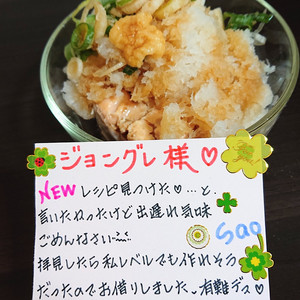 ジョングレ様♡
NEWレシピ見つけた♡…と、
言いたかったけど出遅れ気味
ごめんなさい
sao
拝見したら私レベルでも作れそう
だったのでお借りしました、有難デス♡